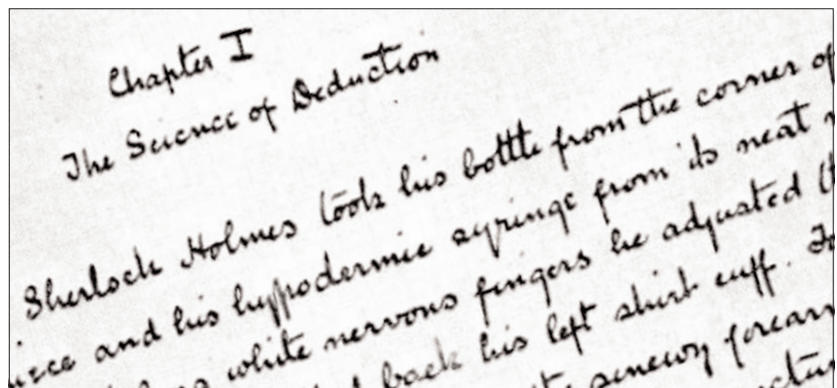 Chapter I
The Science of Deduction
Sherlock Holmes took his bottle from the corner of
and his hypodermic syringe from its neat
white nervous fingers he adjusted
back his left shirt cuff.
sinewy forearm